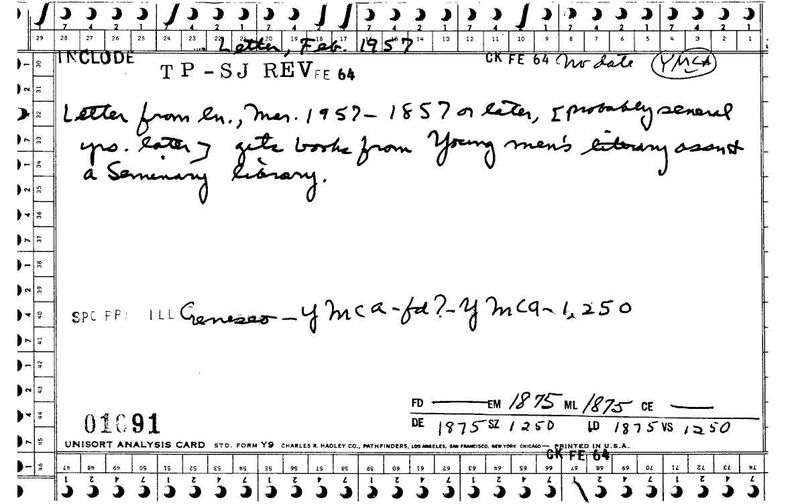 Letter, Feb. 1957
INCLUDE TP-SJ REV FE 64 CK FE 64 no date YMCA
Letter from ln., Mar. 1957 - 1857 or later, [probably several
yrs. later] gets books from Young men's literary assn &
a Seminary library.
SPC FP ILL Geneseo - YMCA - fd? - YMCA - 1,250
FD — EM 1875 ML 1875 CE —
01691 DE 1875 SZ 1250 LD 1875 VS 1250
UNISORT ANALYSIS CARD STD. FORM Y9 CHARLES R. HADLEY CO., PATHFINDERS, LOS ANGELES, SAN FRANCISCO, NEW YORK CHICAGO — PRINTED IN U.S.A.
CK FE 64